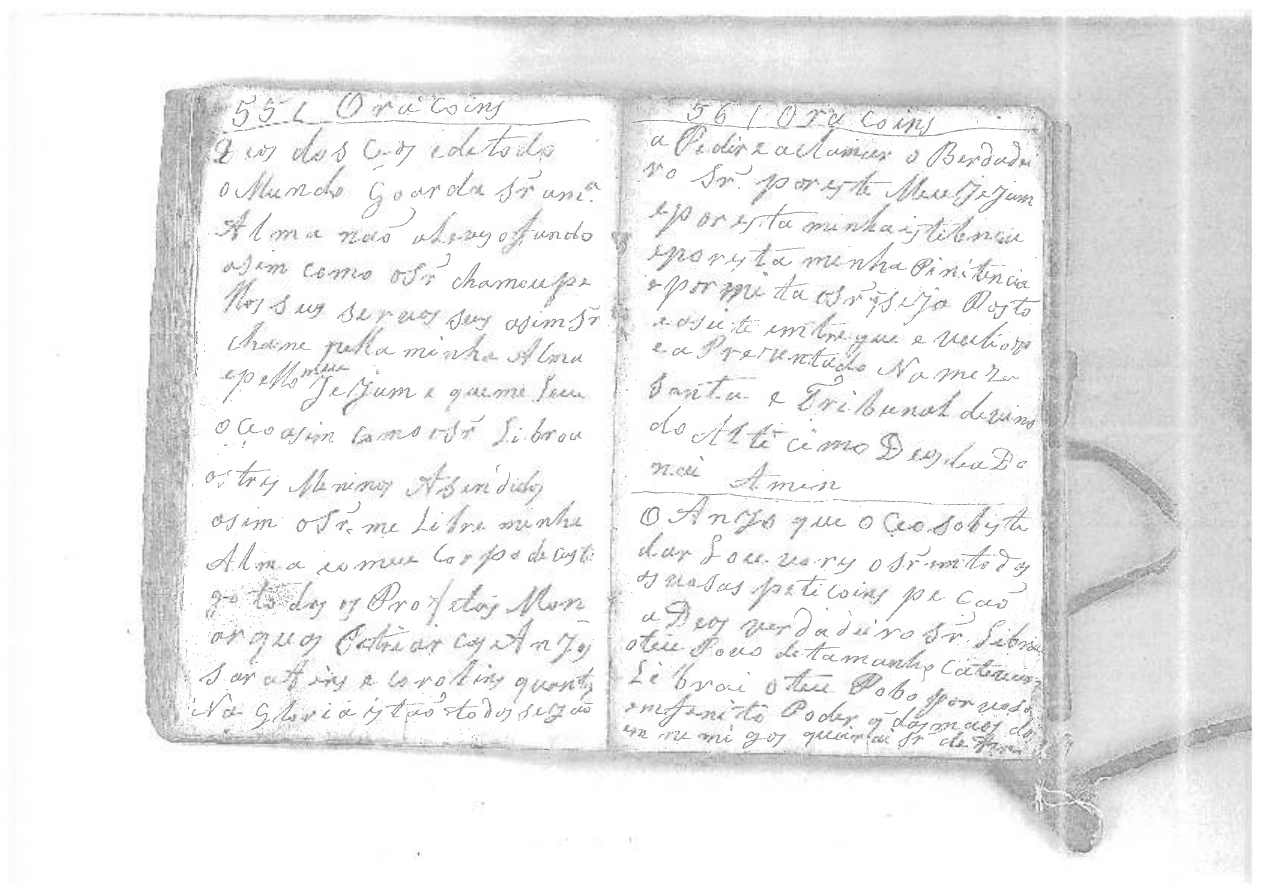 55 / Oracoins
Deos dos Ceos e de todo
o Mundo Goarda Sr am.ª
Alma não aleveso fundo
asim como o Sr chamou pe
llos seus servos seus asim Sr
chame pella minha Alma
e pello meu JeJum e que me leve
o Ceo asim como o Sr Librou
os tres Meninos Asendidos
asim o Sr. me Libre minha
Alma eomeu Corpo de casti
go todos os Profetas Mon
arquos Patriarcos e Anjos
Sarafins e corobins quantos
Na Gloria istão todos seJão
56 / Oracoins
a Pedir e aclamar o Berdadei
ro Sr. por este Meu JeJum
e por esta minha istilencia
e por esta minha Pinitencia
e por mita o Sr q seja Posto
e asuite emtregue e
e a Prezentado Na meza
Santa e Tribunal devino
do Altecimo Deos leu Do
nai Amen
O Anjo que o Ceo sobiste
dar Louvores o Sr im todas
as vasas peticoins pe cão
a Deos verdadeiro Sr. Librai
o teu Povo de tamanho Cativeiro
Librai o teu Pobo por vaso
omfenito Poder q das maos do
en ne migos queirai Sr de